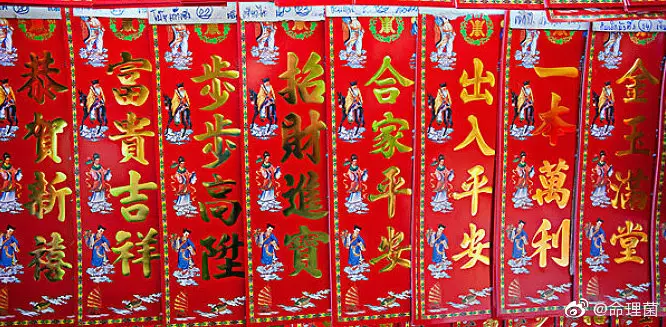 恭賀新禧
富貴吉祥
步步高陞
招財進寶
合家平安
出入平安
一本萬利
金玉滿堂
@命理菌